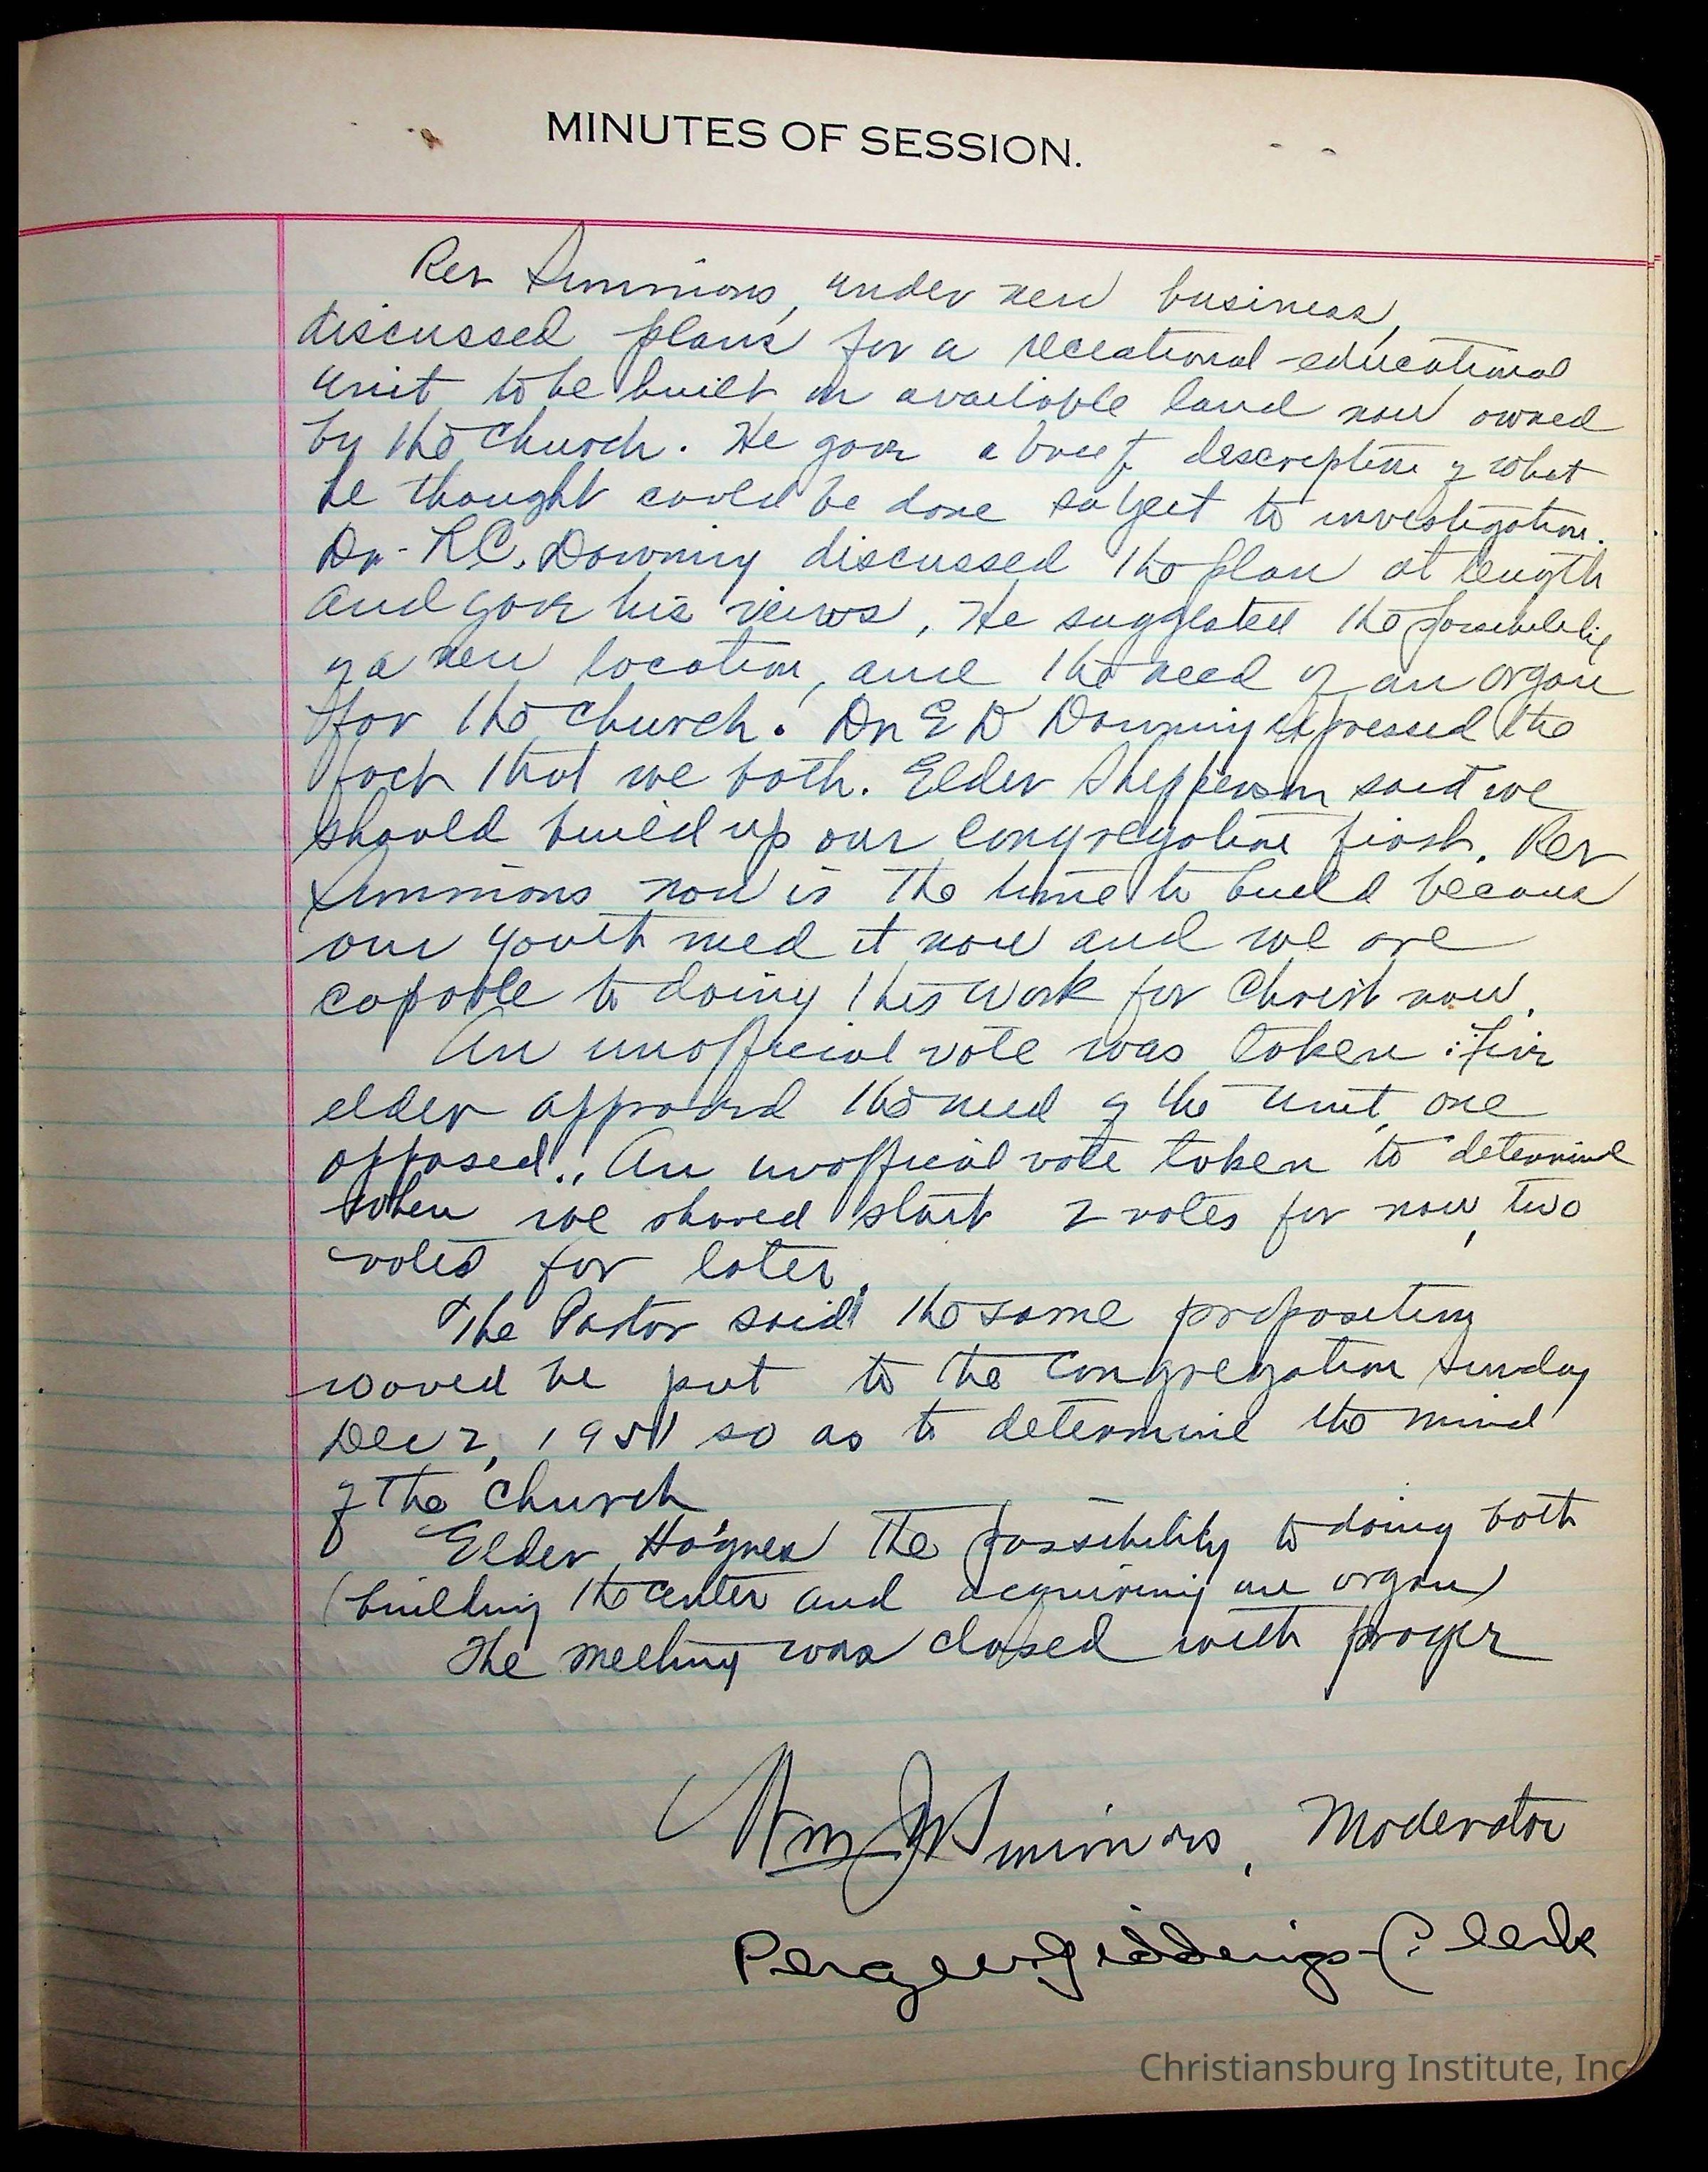 MINUTES OF SESSION.
Rev Simmons, under new business,
discussed plans for a recreational-educational
unit to be built on available land now owned
by the church. He gave a brief description of what
he thought could be done subject to investigation.
Dr. L.C. Downing discussed the plan at length
and gave his views. He suggested the possibility
of a new location, and the need of an organ
for the church. Dr E D Downing expressed the
fact that we both. Elder Shepperson said we
should build up our congregation first. Rev
Simmons now is the time to build because
our youth need it now and we are
capable to doing this work for Christ now.
An unofficial vote was taken: Five
elder approved the need of the unit, one
opposed. An unofficial vote taken to determine
when we should start 2 votes for now, two
votes for later.
The Pastor said the same proposition
would be put to the congregation Sunday
Dec 2, 1951 so as to determine the mind
of the church
Elder Haynes the possibility to doing both
(building the center and acquiring an organ)
The meeting was closed with prayer
Wm J Simmons, Moderator
Giddings-Clerk
Christiansburg Institute, Inc